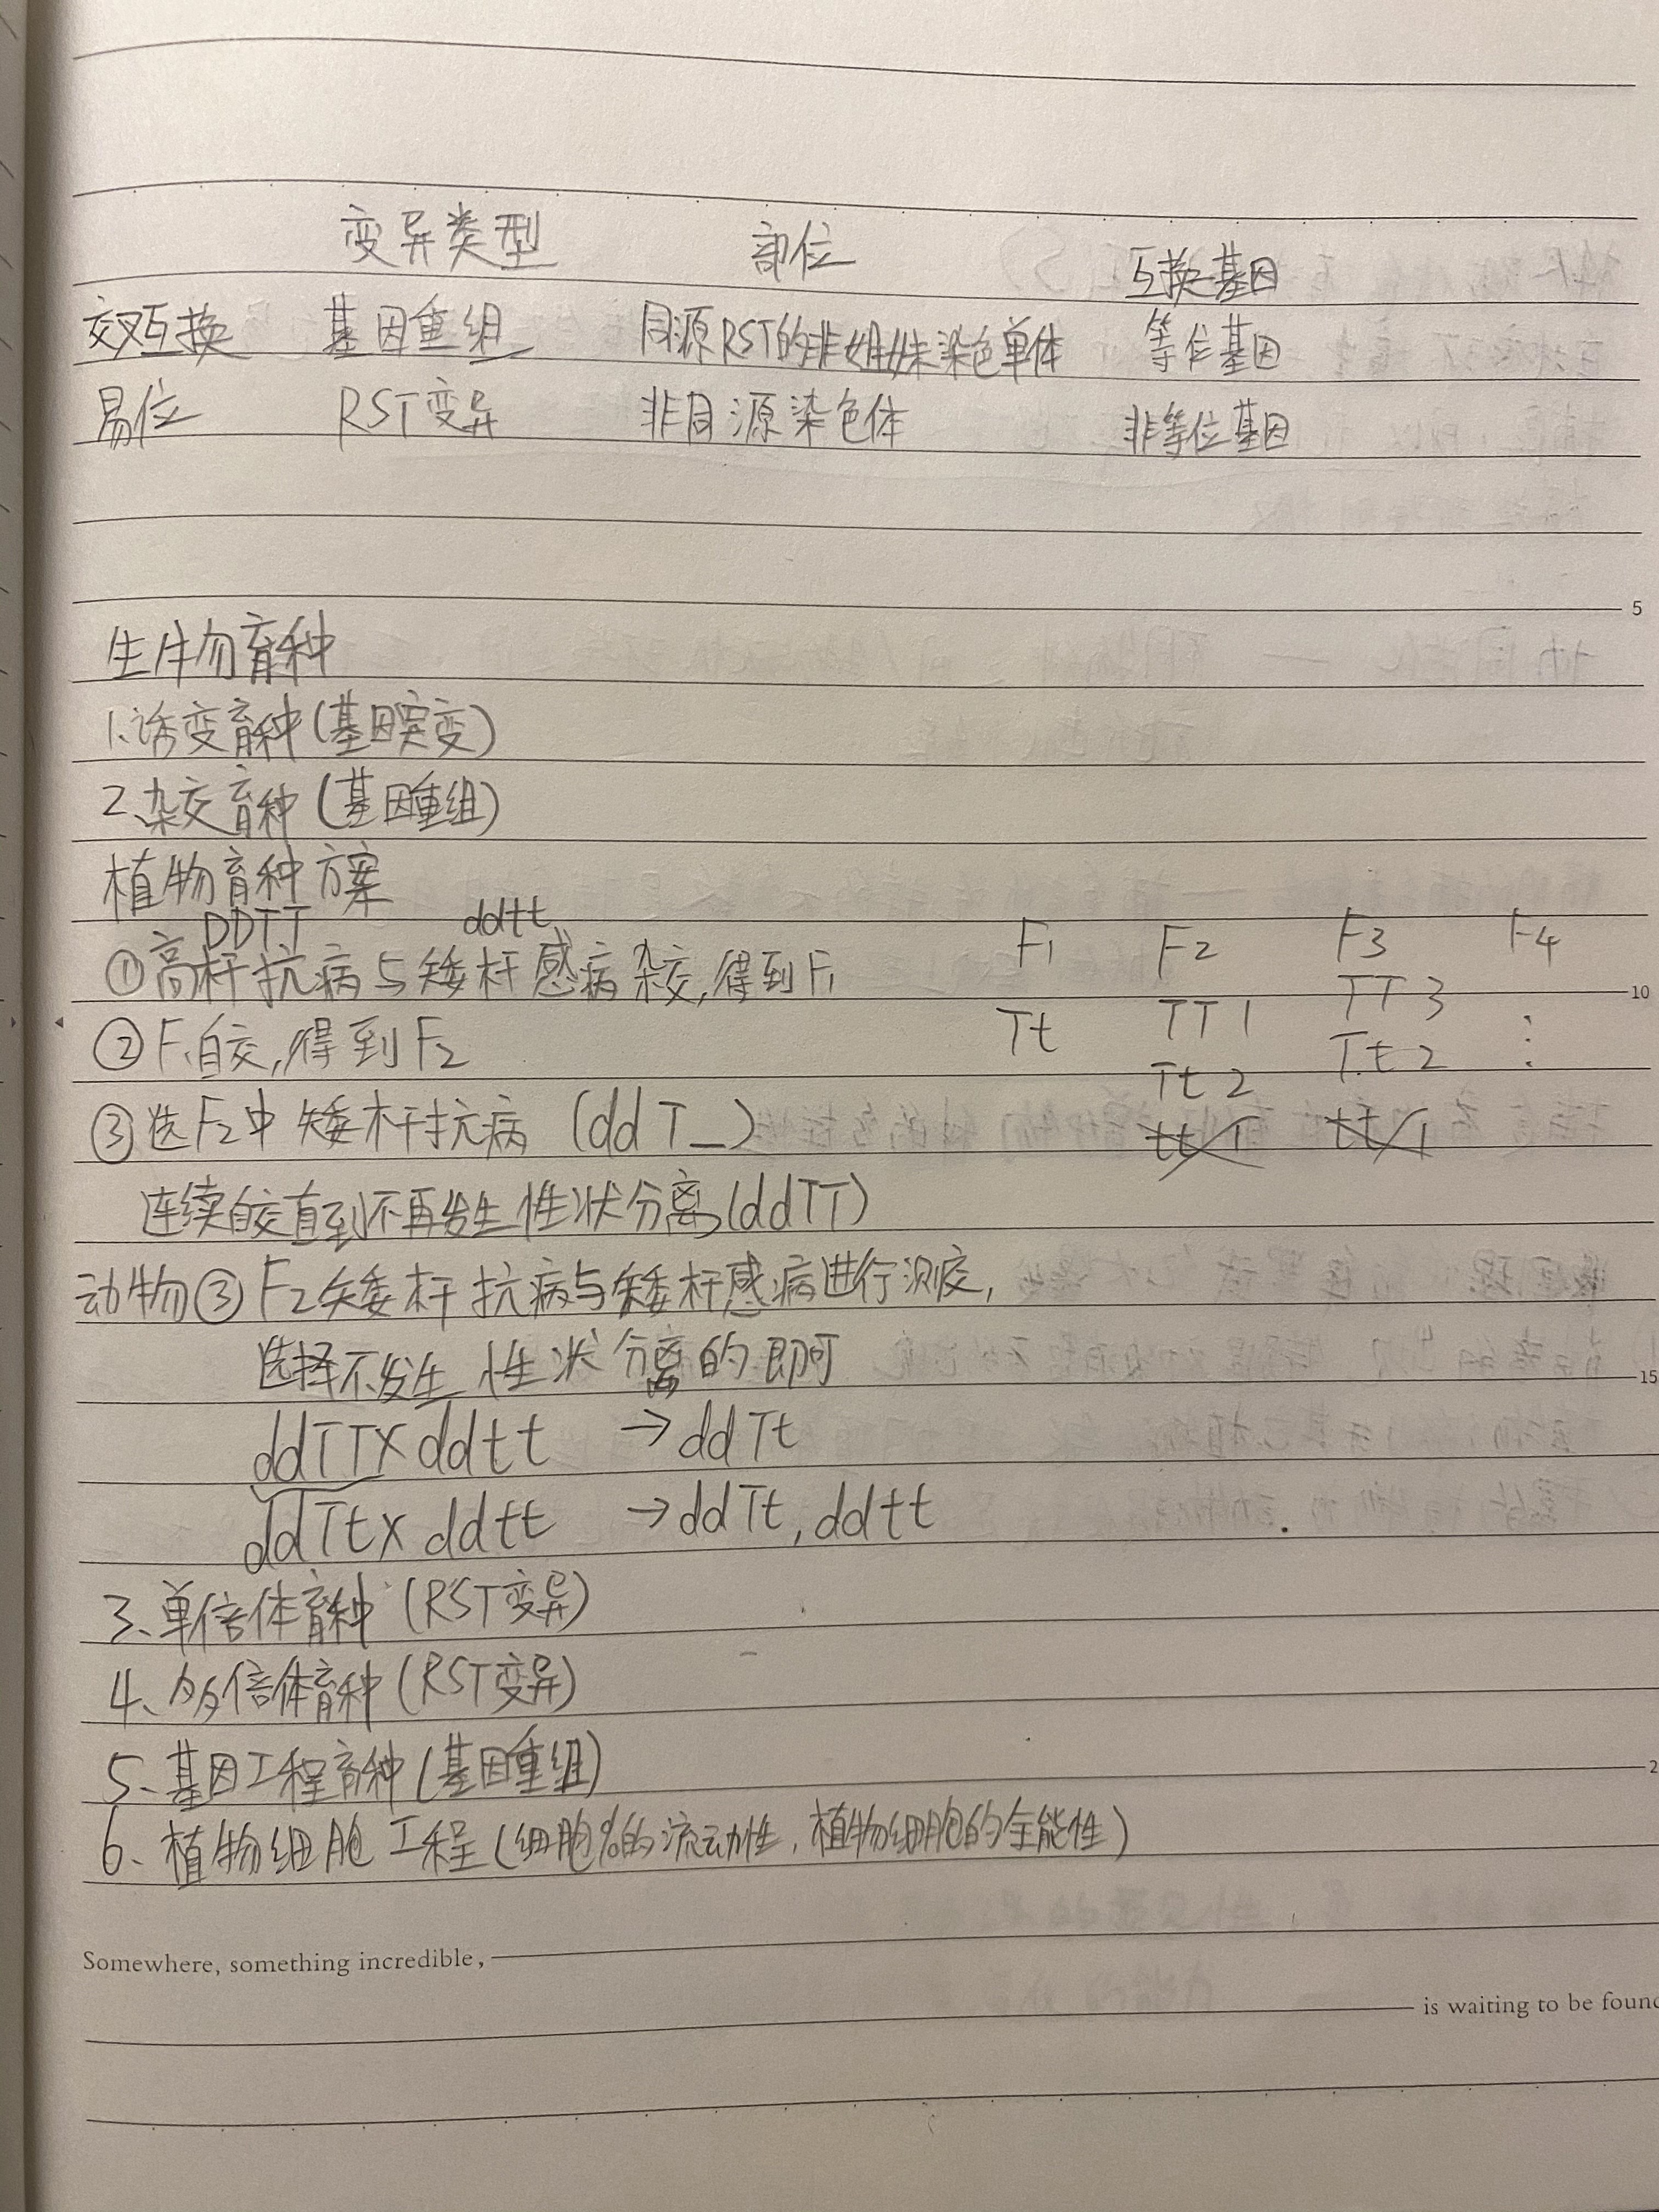 变异类型 部位 互换基因
交叉互换 基因重组 同源RST的非姐妹染色单体 等位基因
易位 RST变异 非同源染色体 非等位基因
生物育种
1.诱变育种(基因突变)
2.杂交育种(基因重组)
植物育种方案
DDTT ddtt
①高杆抗病与矮杆感病杂交,得到F1
②F1自交,得到F2
③选F2中矮杆抗病 (ddT_)
连续自交直到不再发生性状分离(ddTT)
F1 F2 F3 F4
Tt TT 1 TT 3 ⋮
Tt 2 Tt 2
tt 1 tt 1
动物③F2矮杆抗病与矮杆感病进行测交,
选择不发生性状分离的即可
ddTT×ddtt →ddTt
ddTt×ddtt →ddTt,ddtt
3.单倍体育种(RST变异)
4、多倍体育种(RST变异)
5、基因工程育种(基因重组)
6、植物细胞工程(细胞膜的流动性,植物细胞的全能性)
Somewhere, something incredible,
is waiting to be found
5
10
15
2